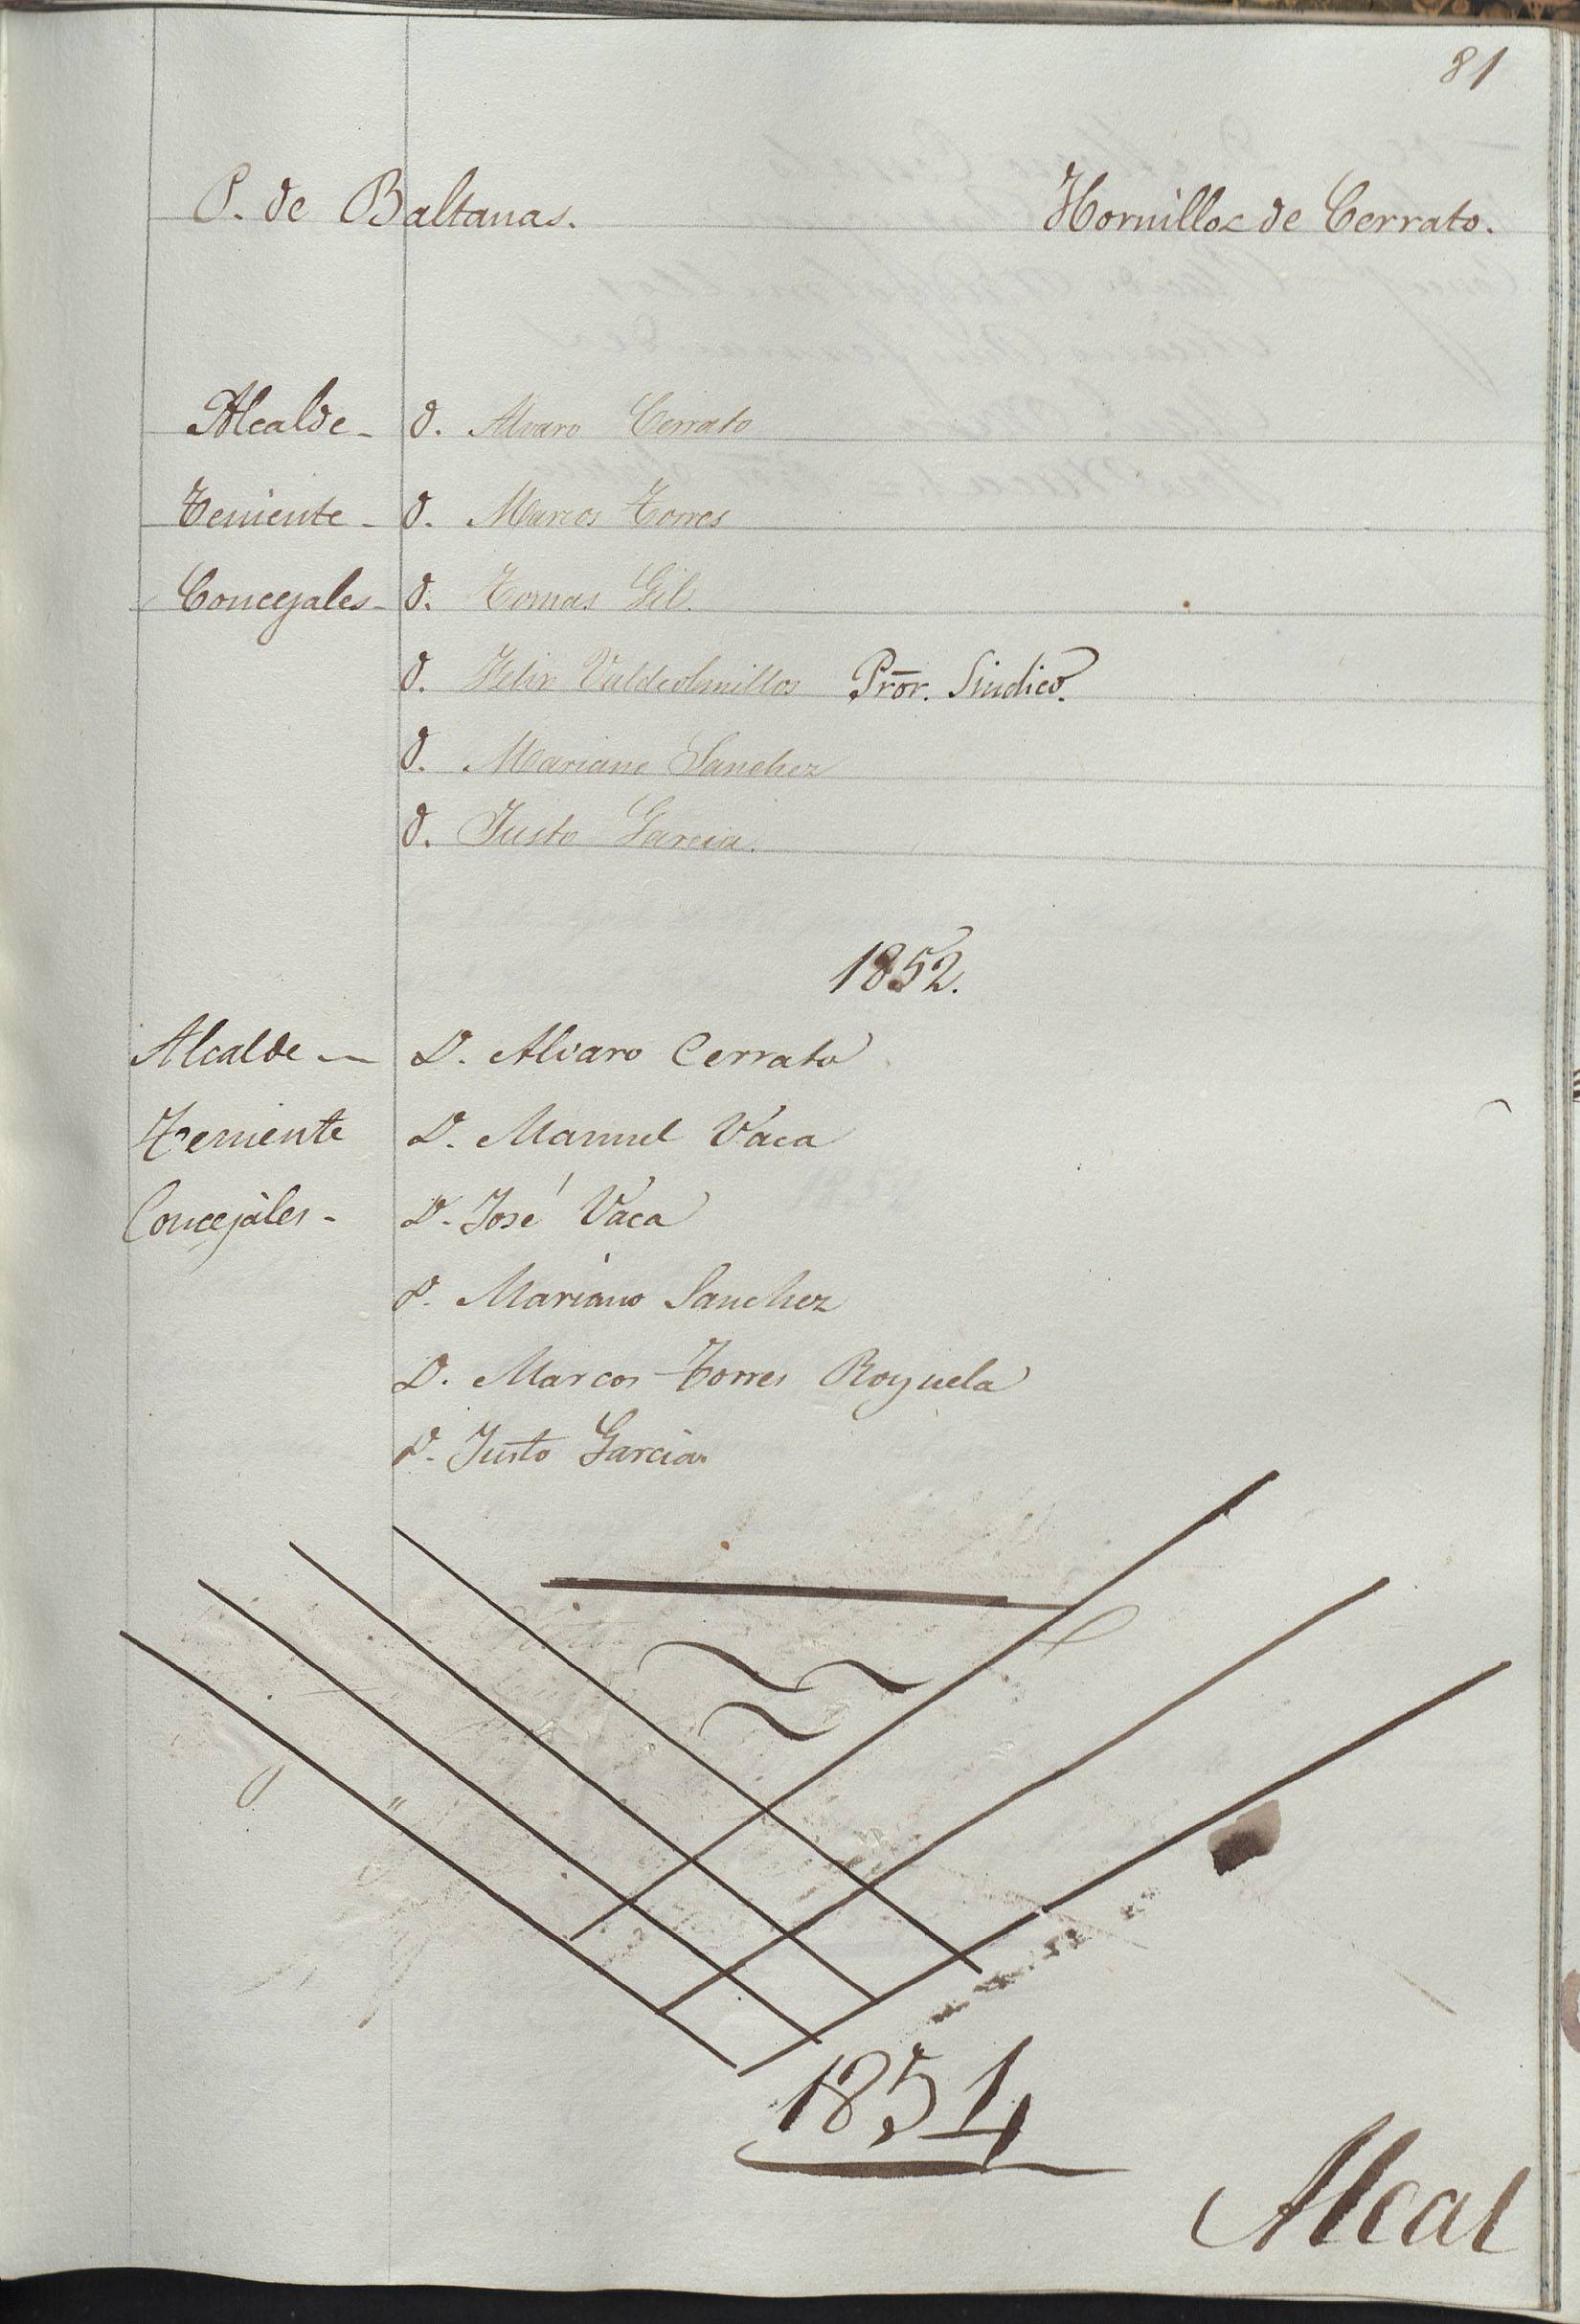 81
P. de Baltanas. Hornillos de Cerrato.
Alcalde - D. Alvaro Cerrato
Teniente - D. Marcos Torres
Concejales - D. Tomas Gil.
D. Felix Valdeolmillos Pror. Sindico.
D. Mariano Sanchez
D. Justo Garcia.
1852.
Alcalde - D. Alvaro Cerrato
Teniente D. Manuel Vaca
Concejales - D. José Vaca
D. Mariano Sanchez
D. Marcos Torres Royuela
D. Justo Garcia.
1854
Alcal